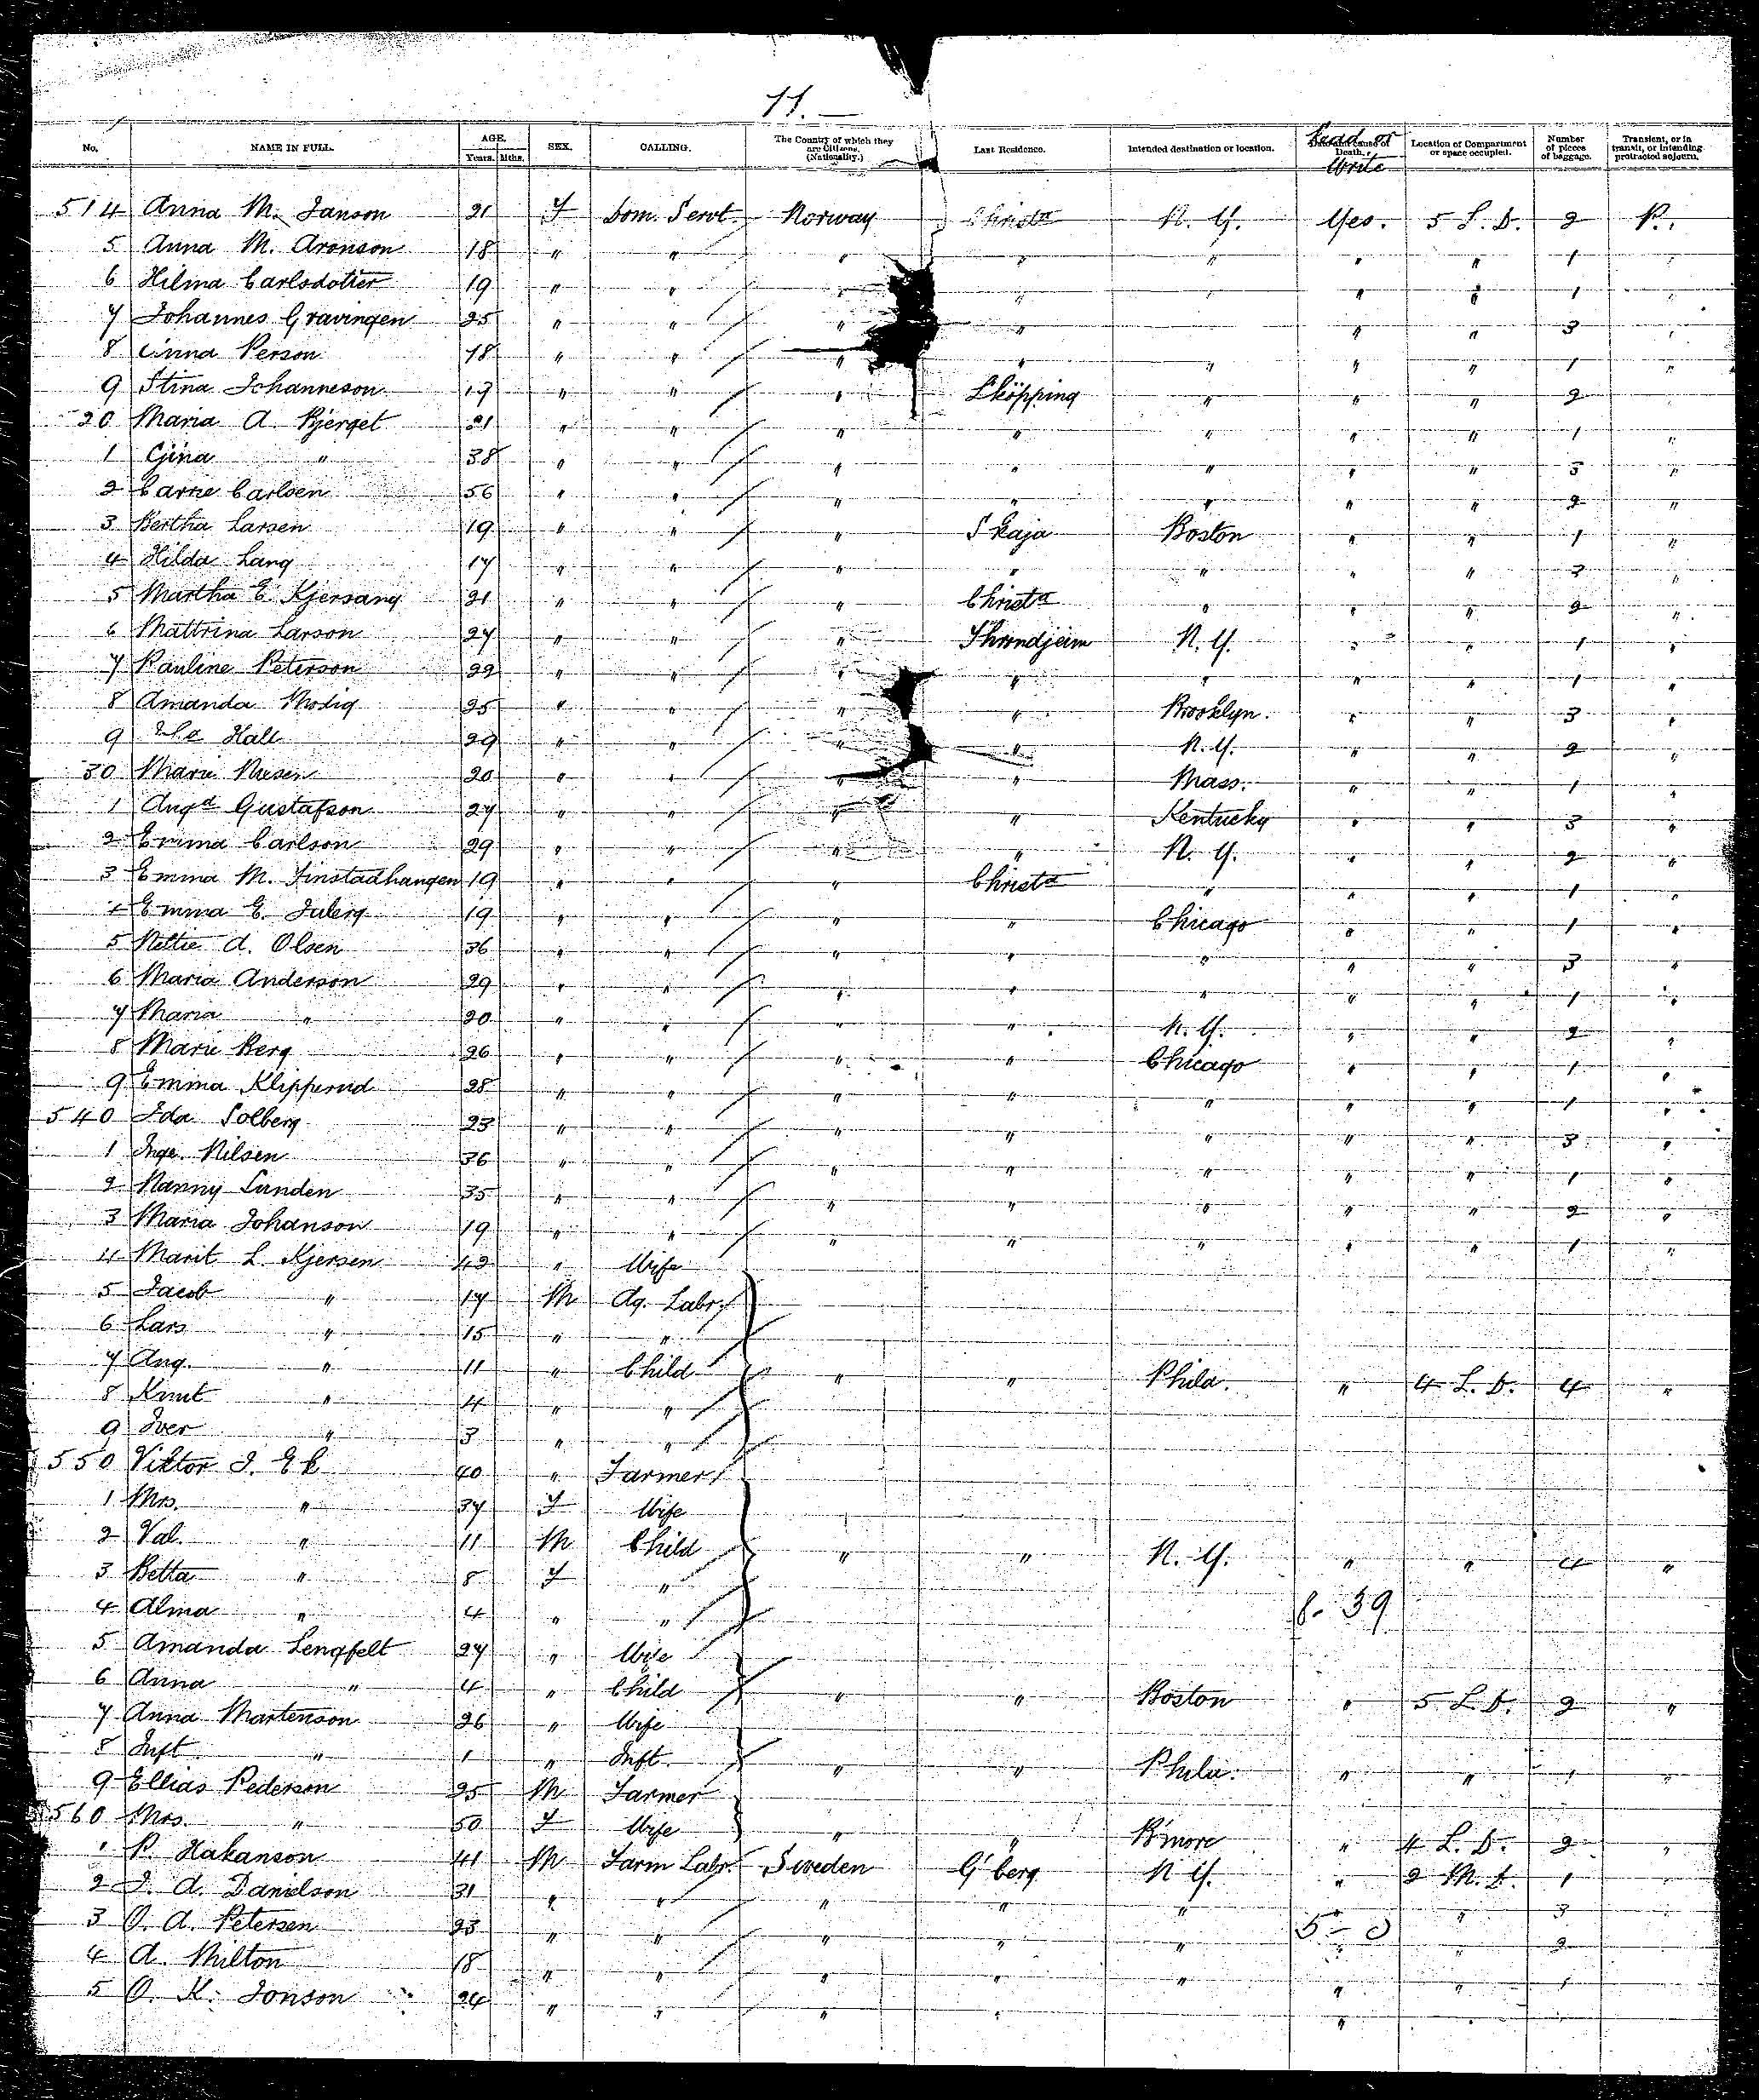 11. —
No. NAME IN FULL. AGE. Years. Mths. SEX. CALLING. The Country of which they are Citizens. (Nationality.) Last Residence. Intended destination or location. Read or Write Date and Cause of Death. Location of Compartment or space occupied. Number of pieces of baggage. Transient, or in transit, or intending protracted sojourn.
514 Anna M. Janson 21 F Dom. Servt. Norway Christa N. Y. Yes. 5 L. D. 2 P.
5 Anna M. Aronson 18 " " " " " " " 1 "
6 Hilma Carlsdotter 19 " " " " " " " 1 "
7 Johannes Gravingen 25 " " " " " " 3 "
8 Anna Person 18 " " " " " " " 1 "
9 Stina Johanneson 19 " " " Lköpping " " " 2
20 Maria A. Bjerget 21 " " " " " " " 1 "
1 Gina " 38 " " " " " " " 3 "
2 Carrie Carlsen 56 " " " " " " " 2 "
3 Bertha Larsen 19 " " " Skaja Boston " " 1 "
4 Hilda Lang 17 " " " " " " " 3 "
5 Martha E. Kjersang 21 " " " Christa " " " 2 "
6 Mattrina Larson 27 " " " Throndjeim N. Y. " " 1 "
7 Pauline Peterson 22 " " " " " " " 1 "
8 Amanda Modig 25 " " " " Brooklyn. " " 3 "
9 Hall 29 " " " " N. Y. " " 2 "
30 Marie 20 " " " " Mass. " " 1 "
1 Augd Gustafson 27 " " " " Kentucky " " 3 "
2 Emma Carlson 29 " " " " N. Y. " " 2 "
3 Emma M. Finstadhangen 19 " " " Christa " " " 1 "
4 Emma E. Juberg 19 " " " " Chicago " " 1 "
5 Nettie A. Olsen 36 " " " " " " " 3 "
6 Maria Anderson 29 " " " " " " " 1 "
7 Maria " 20 " " " " N. Y. " " 2 "
8 Marie Berg 26 " " " " Chicago " " 1 "
9 Emma Klipperud 28 " " " " " " " 1 "
540 Ida Solberg 23 " " " " " " " 3 "
1 Inge. Nilsen 36 " " " " " " " 1 "
2 Nanny Lunden 35 " " " " " " " 2 "
3 Maria Johanson 19 " " " " " " " 1 "
4 Marit L. Kjersen 42 " Wife
5 Jacob " 17 M Ag. Labr.
6 Lars " 15 " "
7 Aug. " 11 " Child " " Phila. " 4 L. D. 4 "
8 Knut " 4 " "
9 Iver " 3 " "
550 Viktor J. Ek 40 " Farmer
1 Mrs. " 37 F Wife
2 Val. " 11 M Child " " N. Y. " " 4 "
3 Betta " 8 F "
4 Alma " 4 " " 6 - 39
5 Amanda Lengfelt 27 " Wife
6 Anna " 4 " Child " " Boston " 5 L. D. 2 "
7 Anna Martenson 26 " Wife
8 Inft. " 1 " Inft. " " Phila. " " 1 "
9 Ellias Pederson 25 M Farmer
560 Mrs. " 50 F Wife " " B'more " 4 L. D. 2 "
1 P. Hakanson 41 M Farm Labr. Sweden G'berg N Y. " 2 M. D. 1 "
2 J. A. Danielson 31 " " " " " " 3 "
3 O. A. Petersen 23 " " " " " 5 - 0 " 2
4 A. Milton 18 " " " " " " " 1 "
5 O. K. Jonson 24 " " " " "